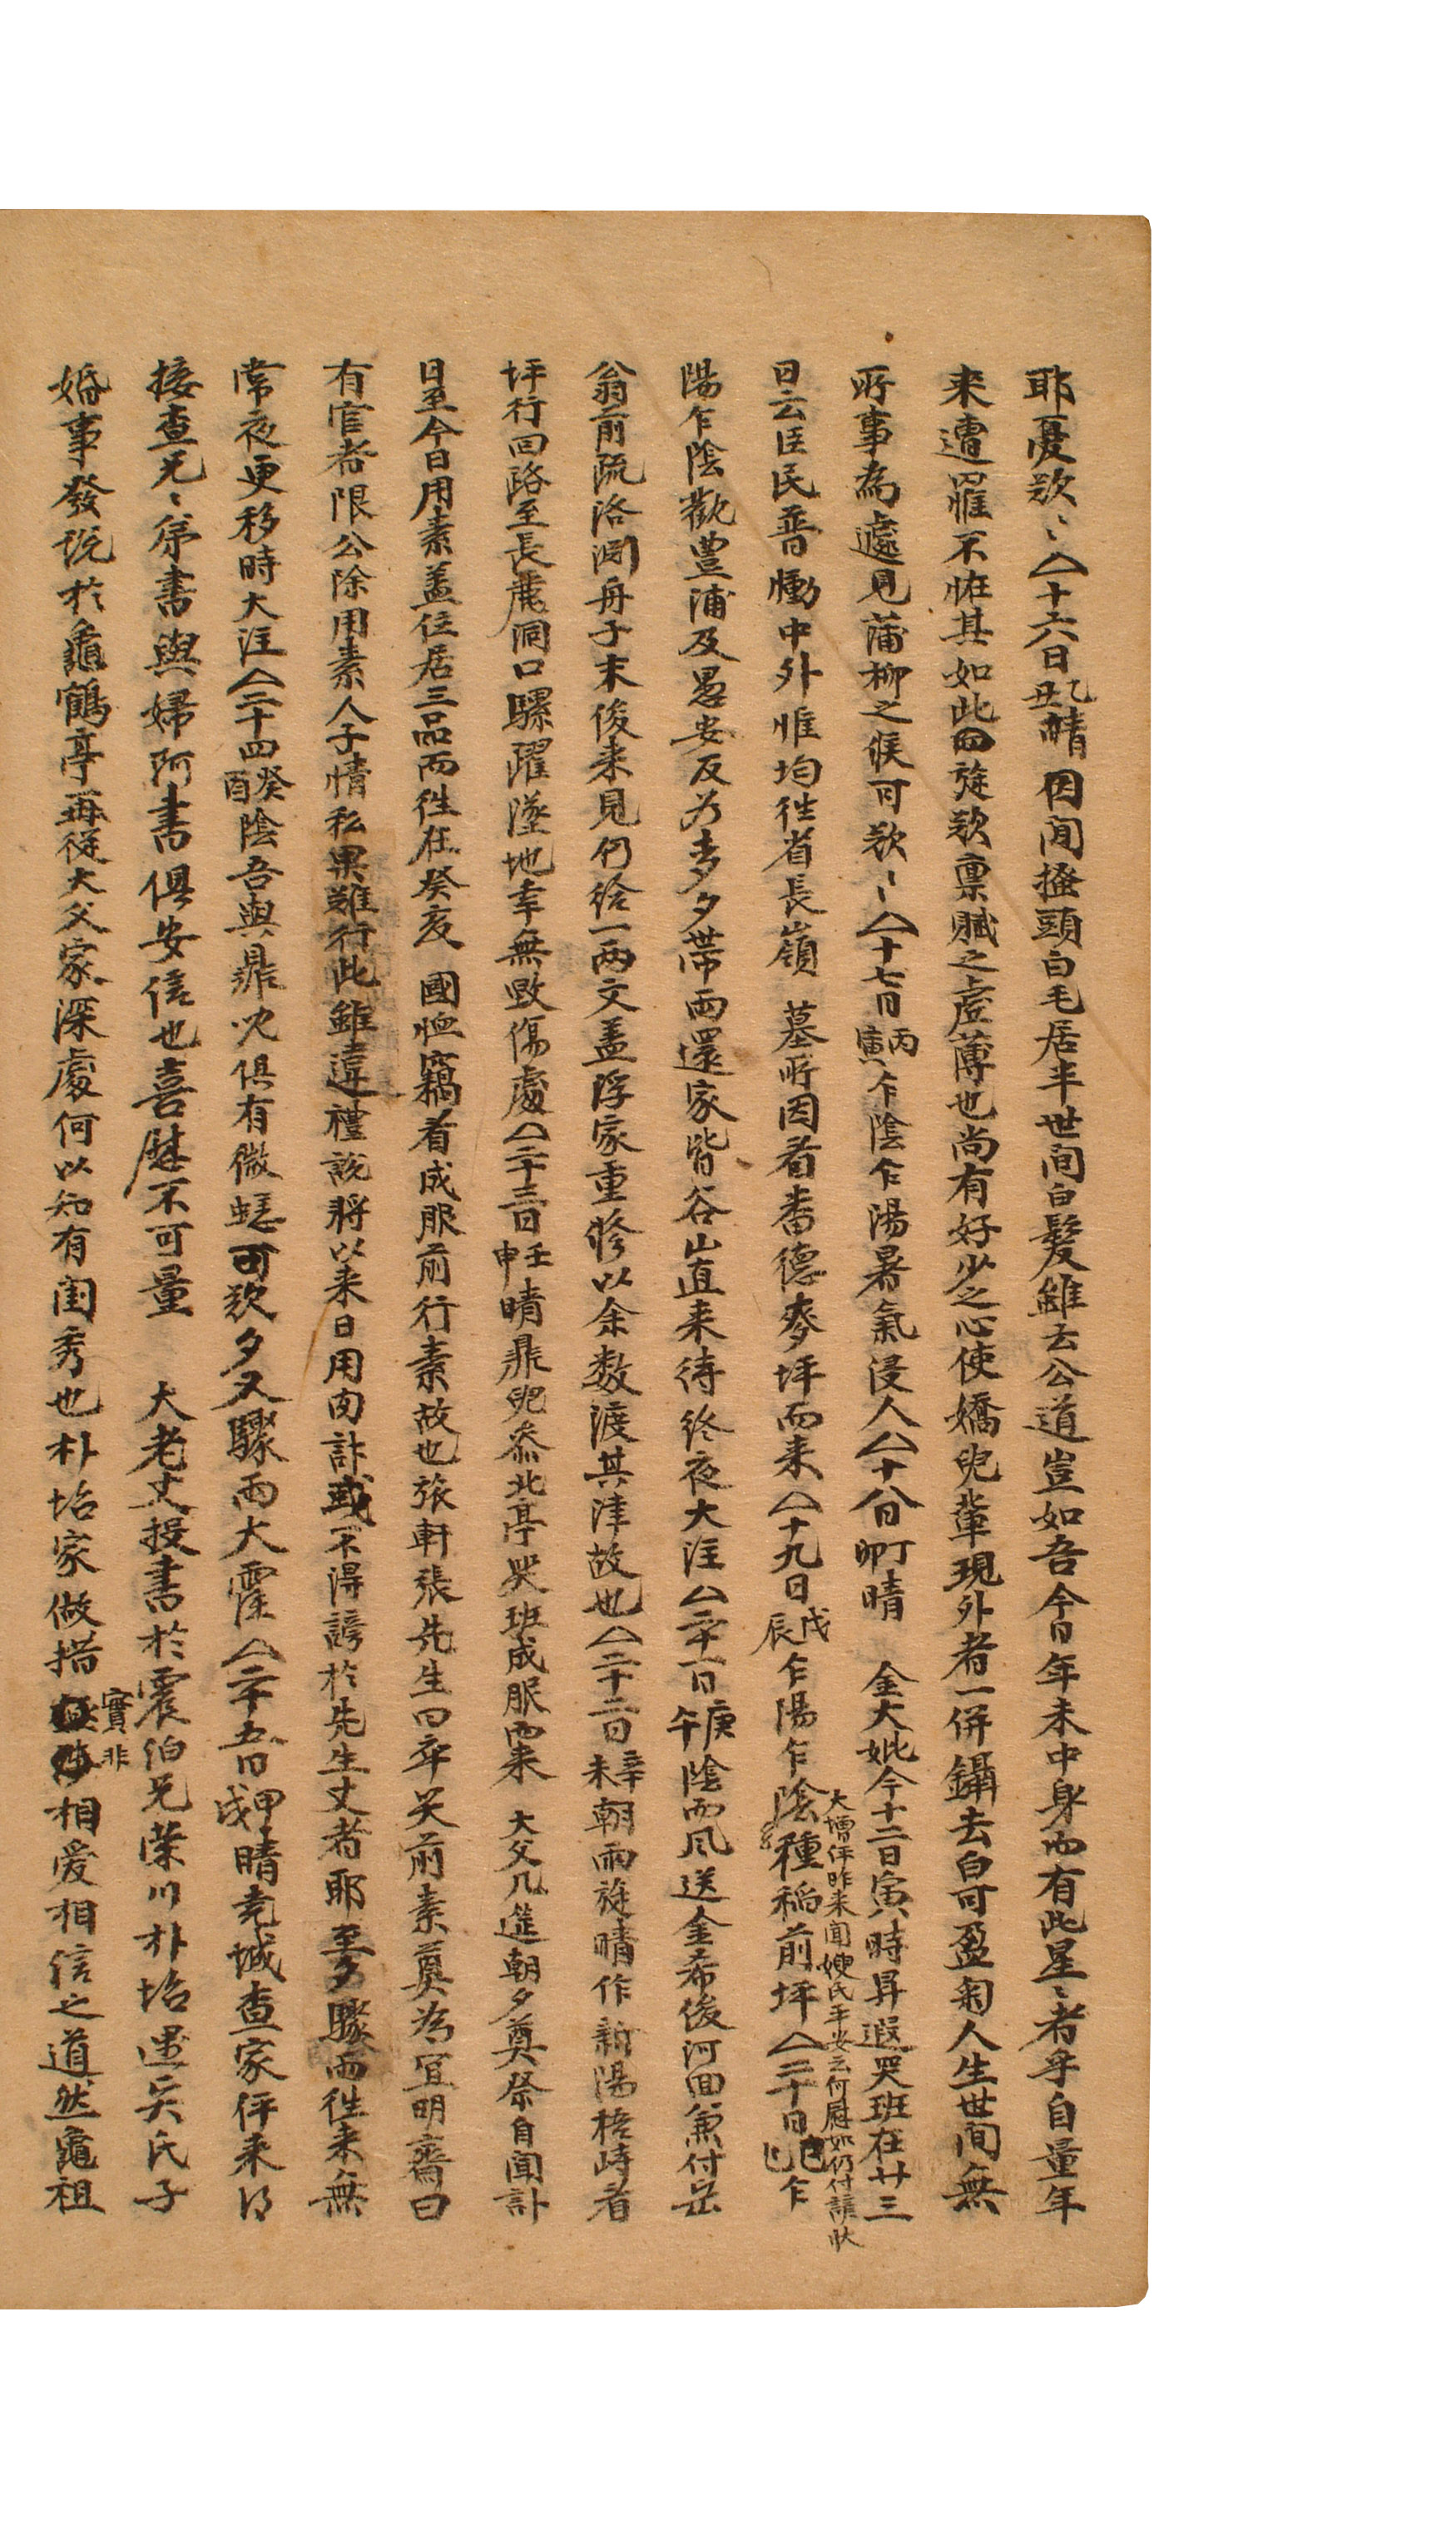 耶憂歎〻△十六日乙丑晴因閒搔頭白毛居半世間白髮雖云公道豈如吾今日年未中身而有此星〻者乎自量年
来遭罹不恠其如此而旋歎禀賦之虛薄也尚有好少之心使嬌兒輩現外者一倂鑷去白可盈匊人生世間無
所事為遽見蒲柳之候可歎〻△十七日丙寅乍陰乍陽暑氣浸人△十八日丁卯晴 金大妣今十二日寅時昇遐哭班在廿三
日云臣民普慟中外惟均徃省長嶺 墓所因看畨德麥坪而来△十九日戊辰乍陽乍陰種稻前坪△二十日己巳乍
大增伻昨来聞嫂氏平安云何慰如仍付謹狀
陽乍陰歡豊浦及愚安反为多夕帶雨還家皆谷山直来待終夜大注△二十一日庚午陰而風送金希俊河回兼付岳
翁前疏洛渕舟子末俊来見仍給一両文盖浮家重修以余数渡其津故也△二十二日辛未朝雨旋晴作新陽梧峙看
坪行回路至長麂洞口騾躍墜地幸無毁傷處△二十三日壬申晴鼎兒忝北亭哭班成服而来 大父几筵朝夕奠祭自聞訃
日至今日用素盖位居三品而徃在癸亥 國恤竊看成服前行素故也旅軒張先生曰卒哭前素奠為宜明齋曰
有官者限公除用素人子情私果難行此雖違禮說將以来日用肉訃或不得謗於先生丈者耶至夕驟而徃来無
常夜更移時大注△二十四癸酉陰吾與鼎兒俱有微𧏮可歎夕又驟雨大霪△二十五日甲戌晴堯城査家伻来得
接查兄〻弟書與婦阿書俱安信也喜慰不可量 大老丈投書於震伯兄荣川朴㙂遑矣氏子
婚事發說於龜鶴亭再從大父家深處何以知有閨秀也朴㙂家做措實非相爱相信之道然龜祖